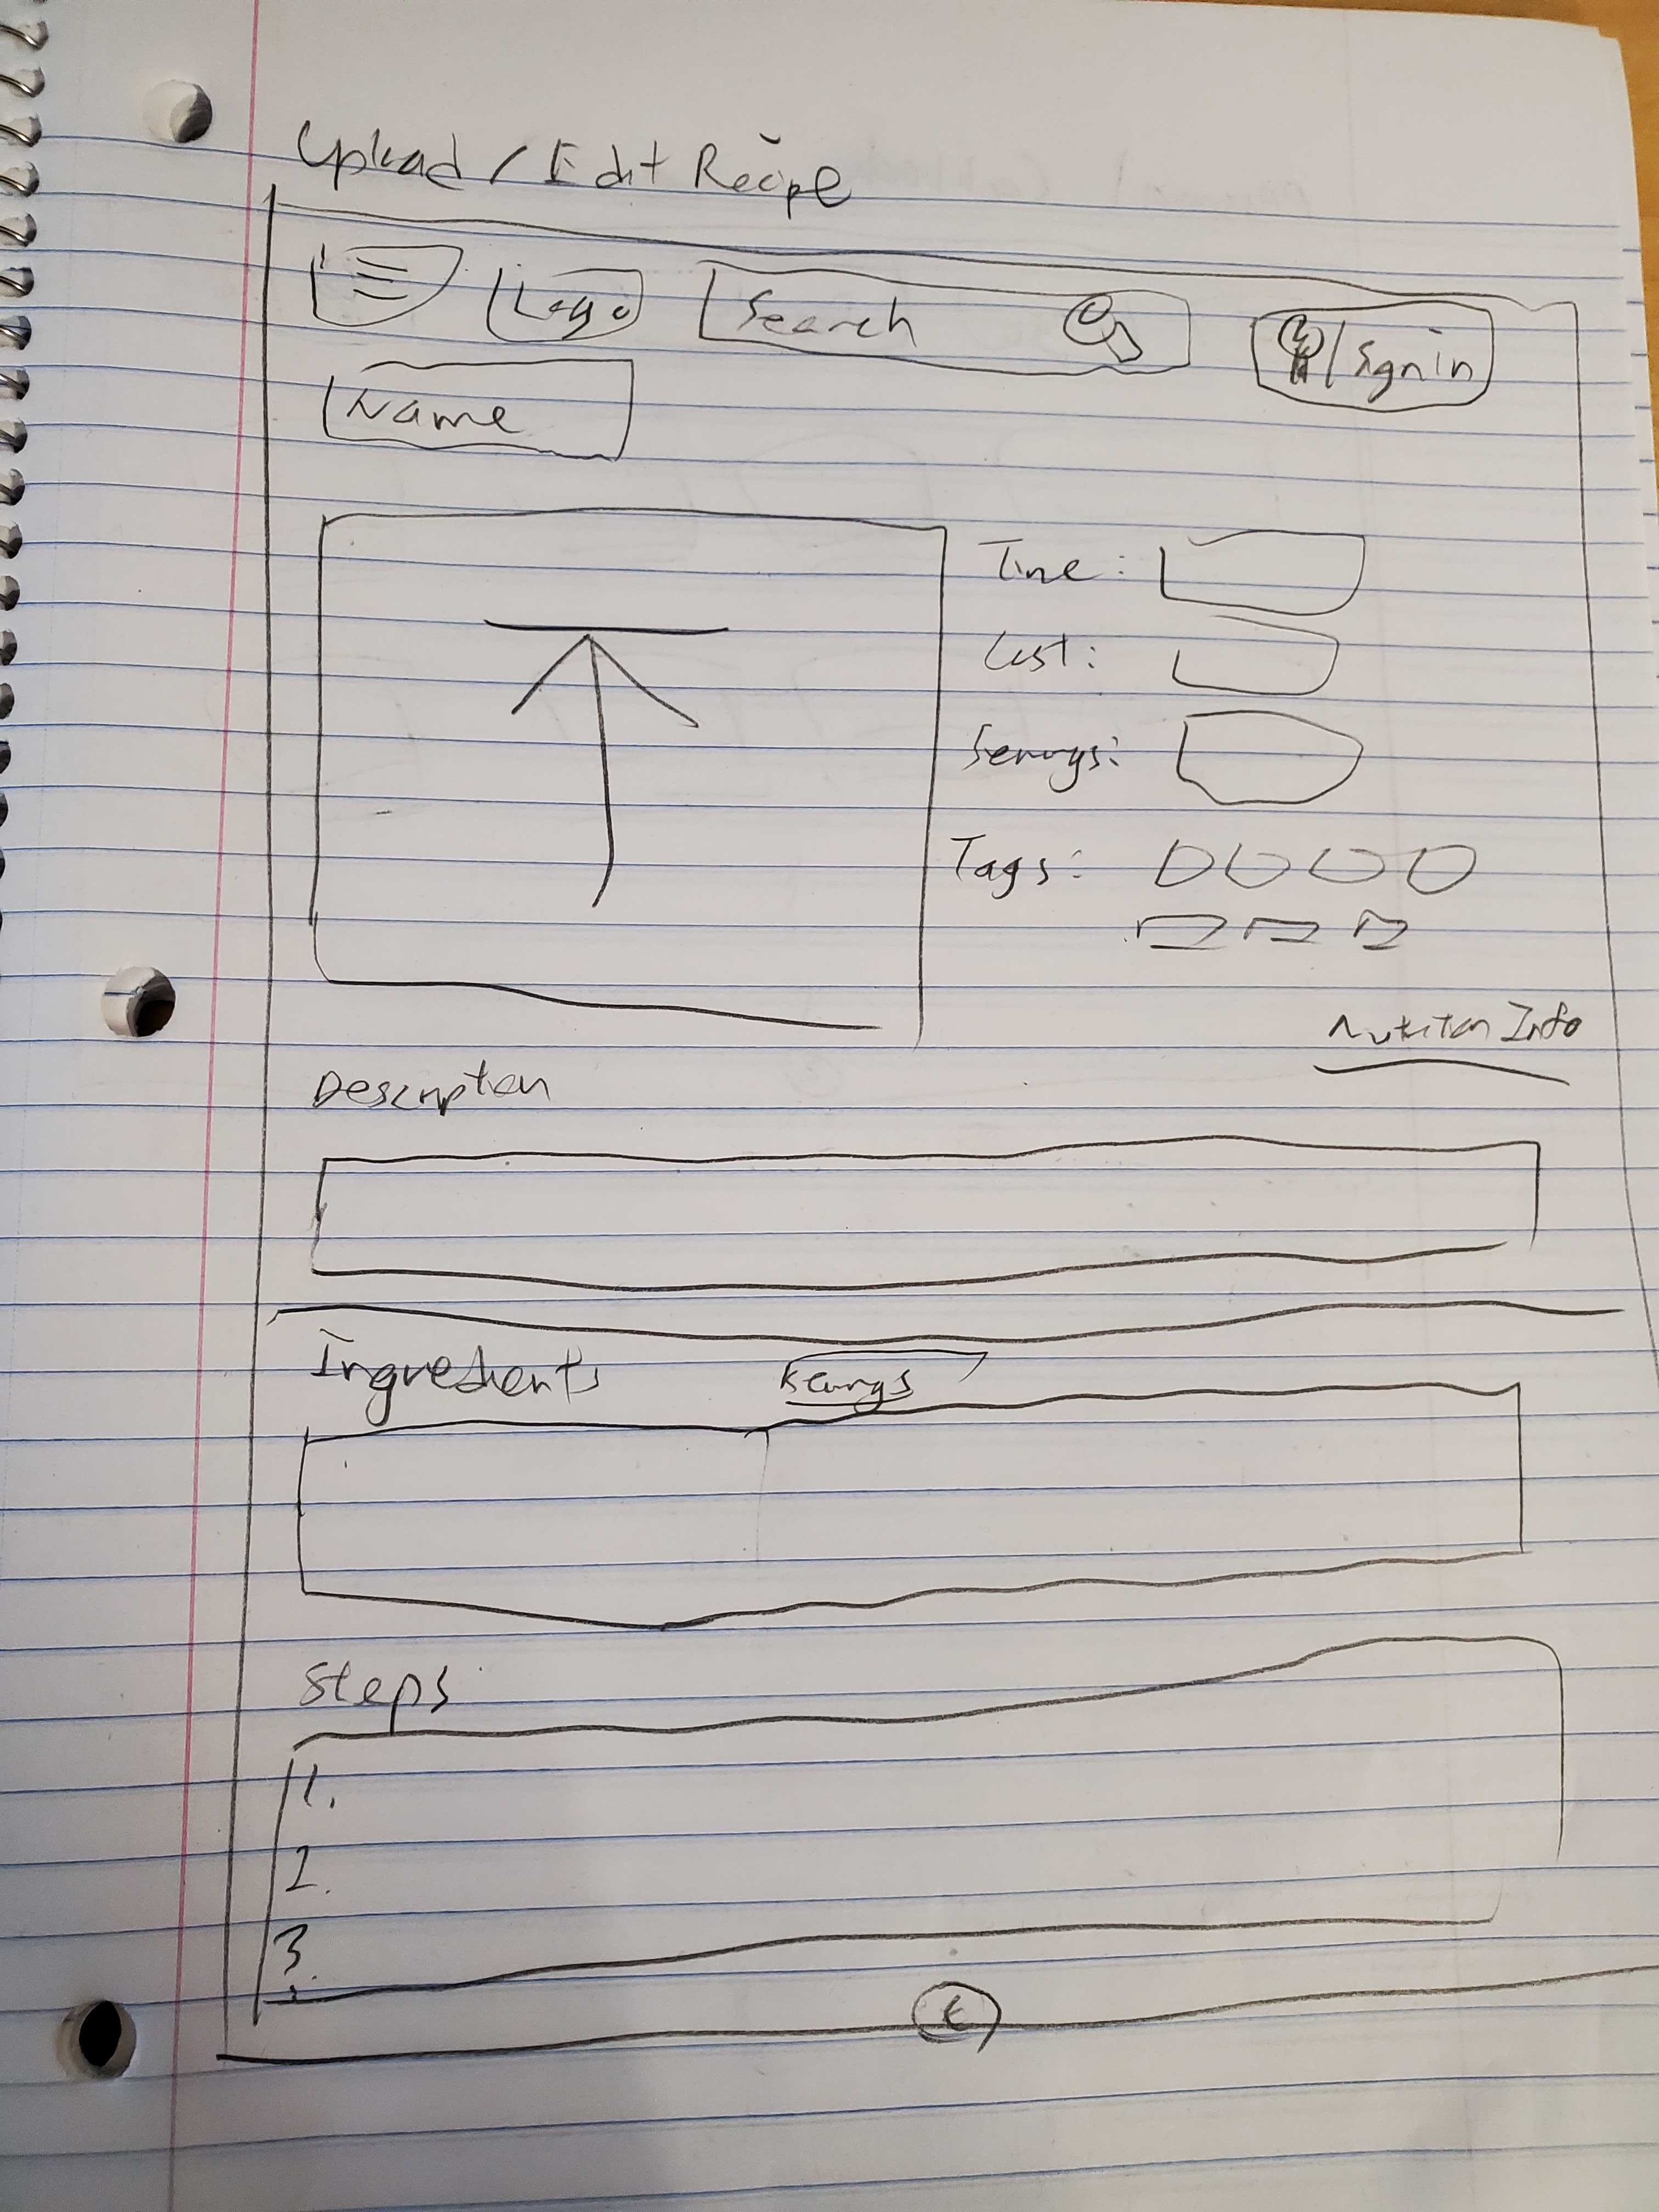 Upload / Edit Recipe
Logo
Search
Sign in
Name
Time:
Cost:
Servings:
Tags:
Nutrition Info
Description
Ingredients
Steps
1.
2.
3.